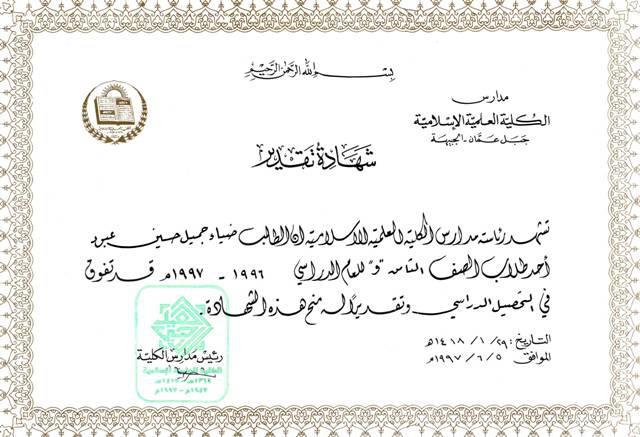 بسم الله الرحمن الرحيم
مدارس
الكلية العلمية الإسلامية
جبل عمّان - الجبيهة
شهادة تقدير
تشهد رئاسة مدارس الكلية العلمية الاسلامية ان الطالب ضياء جميل حسين عبود
أحد طلاب الصف الثامن "و" للعام الدراسي ١٩٩٦ - ١٩٩٧م قد تفوق
في التحصيل الدراسي وتقديراً له منح هذه الشهادة .
التاريخ: ٢٩ / ١ / ١٤١٨هـ
الموافق ٥ / ٦ / ١٩٩٧م
رئيس مدارس الكلية
الكلية العلمية الإسلامية